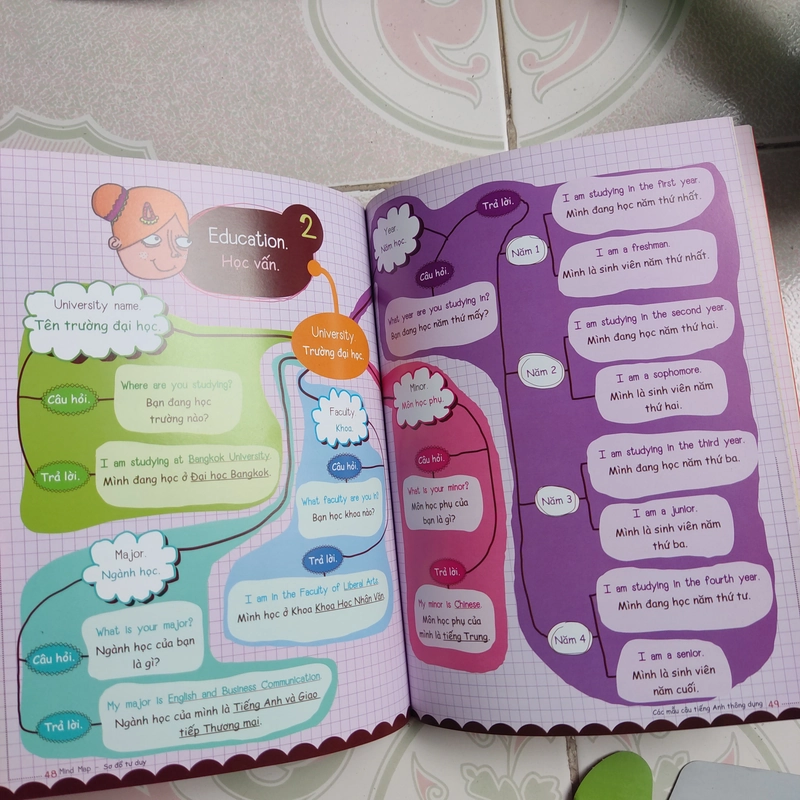 Education.
2
Học vấn.
University name.
Tên trường đại học.
University
Trường đại học.
Câu hỏi.
Where are you studying?
Bạn đang học
trường nào?
Trả lời.
I am studying at Bangkok University.
Mình đang học ở Đại học Bangkok.
Faculty
Khoa.
Câu hỏi.
What faculty are you in?
Bạn học khoa nào?
Trả lời.
I am in the Faculty of Liberal Arts.
Mình học ở Khoa Khoa Học Nhân Văn
Major.
Ngành học.
Câu hỏi.
What is your major?
Ngành học của bạn
là gì?
Trả lời.
My major is English and Business Communication.
Ngành học của mình là Tiếng Anh và Giao
tiếp Thương mại.
48 Mind Map - Sơ đồ tư duy
Year
Năm học.
Câu hỏi.
What year are you studying in?
Bạn đang học năm thứ mấy?
Trả lời.
Năm 1
I am studying in the first year.
Mình đang học năm thứ nhất.
I am a freshman.
Mình là sinh viên năm thứ nhất.
Năm 2
I am studying in the second year.
Mình đang học năm thứ hai.
I am a sophomore.
Mình là sinh viên năm
thứ hai.
Năm 3
I am studying in the third year.
Mình đang học năm thứ ba.
I am a junior.
Mình là sinh viên năm
thứ ba.
Năm 4
I am studying in the fourth year.
Mình đang học năm thứ tư.
I am a senior.
Mình là sinh viên
năm cuối.
Minor.
Môn học phụ.
Câu hỏi.
What is your minor?
Môn học phụ của
bạn là gì?
Trả lời.
My minor is Chinese.
Môn học phụ của
mình là tiếng Trung.
Các mẫu câu tiếng Anh thông dụng 49